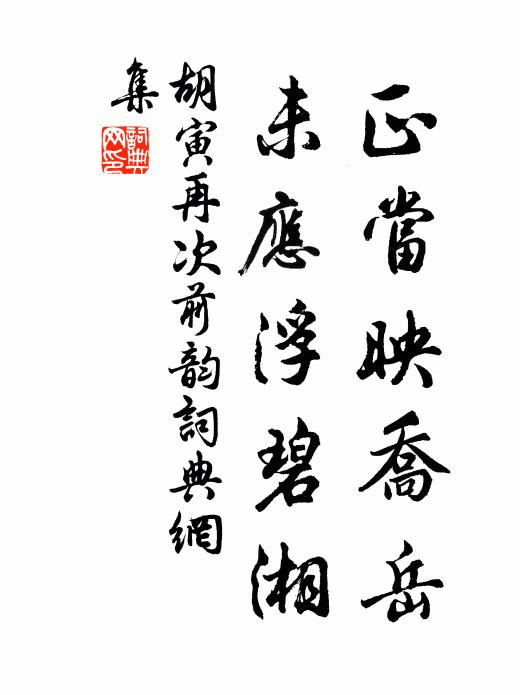 正當映喬岳
未應浮碧湘
胡寅再次前韵詞典網
集
詞典網印